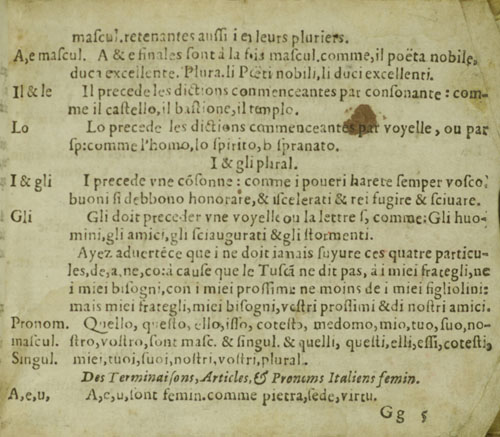 mascul.retenantes aussi i en leurs pluriers.
A,e mascul. A & e finales sont à la fois mascul.comme,il poëta nobile,
duci excellente. Plura.li Poëti nobili,li duci excellenti.
Il & le Il precede les dictions conmenceantes par consonante : com-
me il castello,il bastione,il templo.
Lo Lo precede les dictions commenceantes par voyelle, ou par
sp:comme l'homo, lo spirito, lo spranato.
I & gli plural.
I & gli I precede vne cōsonne : comme i poueri harete semper vosco,
buoni si debbono honoraie, & i scelerati & rei fugire & sciuare.
Gli Gli doit preceder vne voyelle ou la lettre s, comme: Gli huo-
mini, gli amici, gli sciaugurati & gli stormenti.
Ayez aduertēce que i ne doit iamais suyure ces quatre particu-
les, de, a, ne, co: à cause que le Tuscā ne dit pas, à i miei frategli, ne
i miei bisogni, con i miei prossimi: ne moins de i miei figliolini:
mais miei frategli, miei bisogni, vostri prossimi & di nostri amici.
Pronom. Quello, questo, ello, isso, cotesto, medomo, mio, tuo, suo, no-
mascul. stro, vostro, sont masc. & singul. & quelli, questi, elli, essi, cotesti,
Singul. miei, tuoi, suoi, nostri, vostri, plural.
Des Terminaisons, Articles, & Pronoms Italiens femin.
A, e, u, A, e, u, sont femin. comme pietra, sede, virtu.
Gg 5